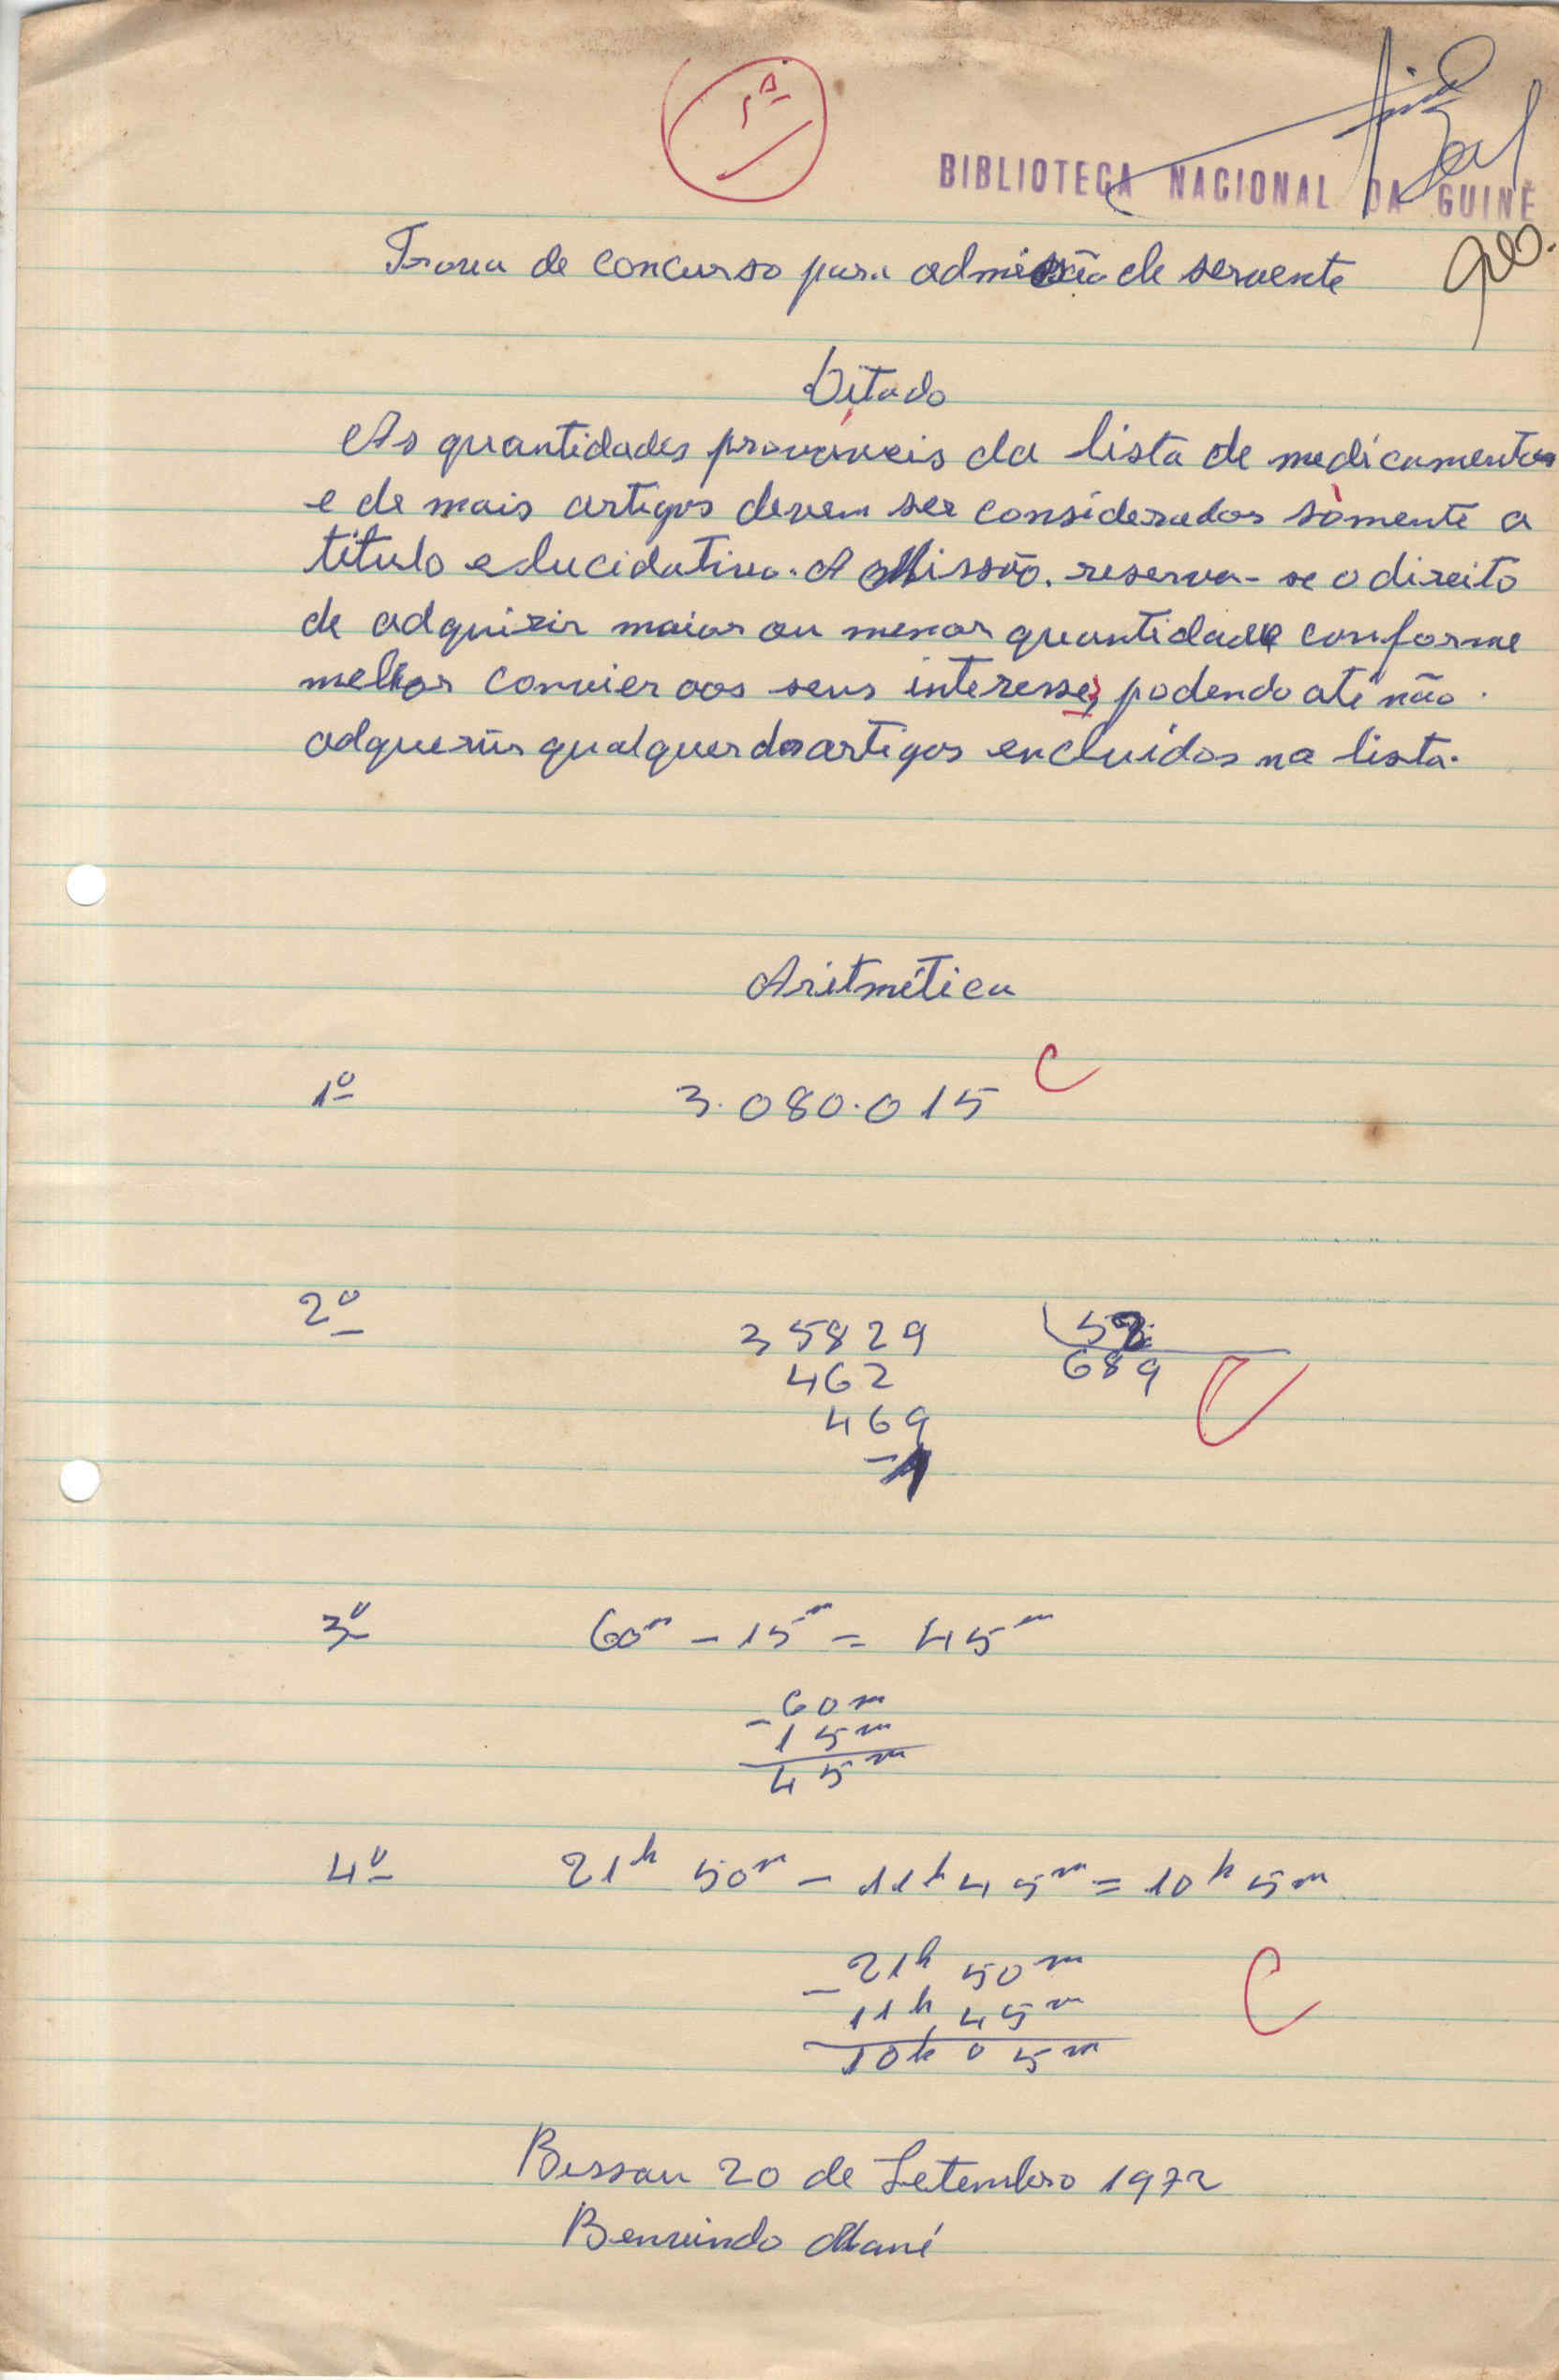 1ª
BIBLIOTECA NACIONAL DA GUINÉ
Prova de concurso para admissão de servente
Ditado
As quantidades prováveis da lista de medicamentos
e de mais artigos devem ser considerados sòmente a
título elucidativo. A Missão. reserva-se o direito
de adquirir maior ou menor quantidade conforme
melhor convier aos seus interesses, podendo até não
adquerir qualquer dos artigos encluídos na lista.
Aritmética
1º 3.080.015 C
2º 35829 52
462 689 C
469
-1
3º 60m - 15m = 45m
-60m
15m
45m
4º 21h 50m - 11h 45m = 10h 5m
-21h 50m
11h 45m C
10h 05m
Bissau 20 de Setembro 1972
Benvindo Mané